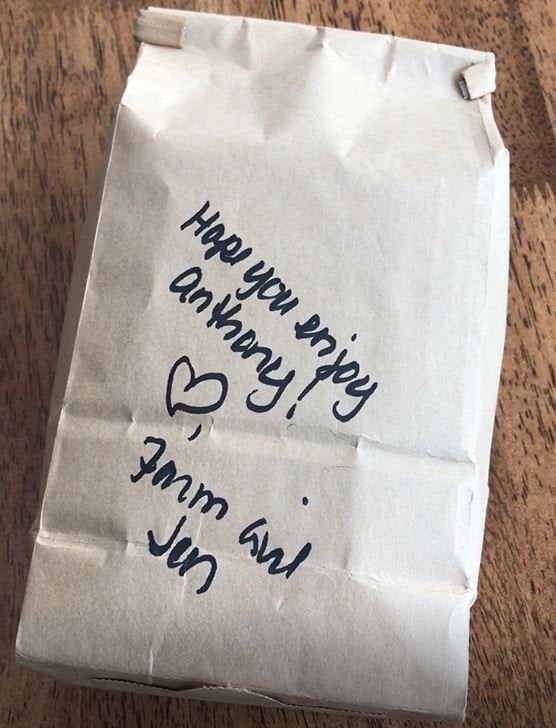 Hope you enjoy
Anthony!
♡,
Farm Girl
Jen